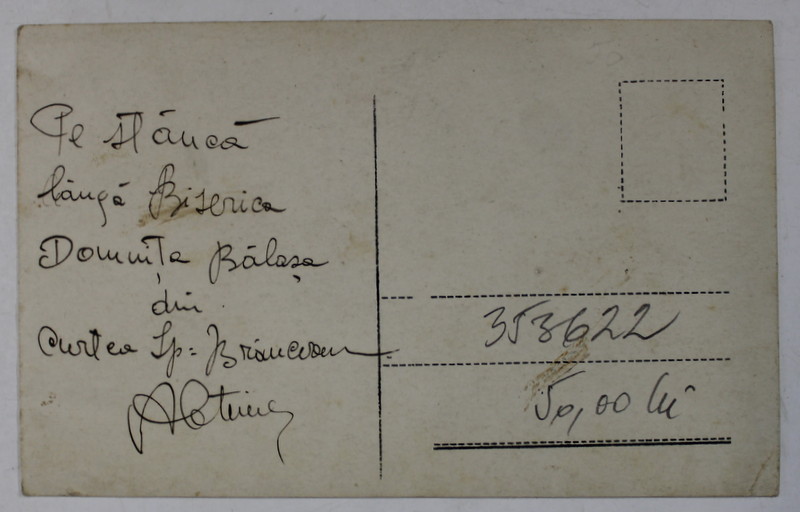 Pe stâncă
lângă Biserica
Domnița Bălașa
din
Curtea Sp: Brâncovan
353622
50,00 lei